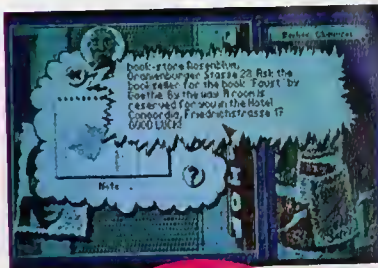 book-store Rosenblum,
Oranienburger Strasse 28. Ask the
bookseller for the book "Faust" by
Goethe. By the way: A room is
reserved for you in the Hotel
Concordia, Friedrichstrasse 17
GOOD LUCK!
Note
?